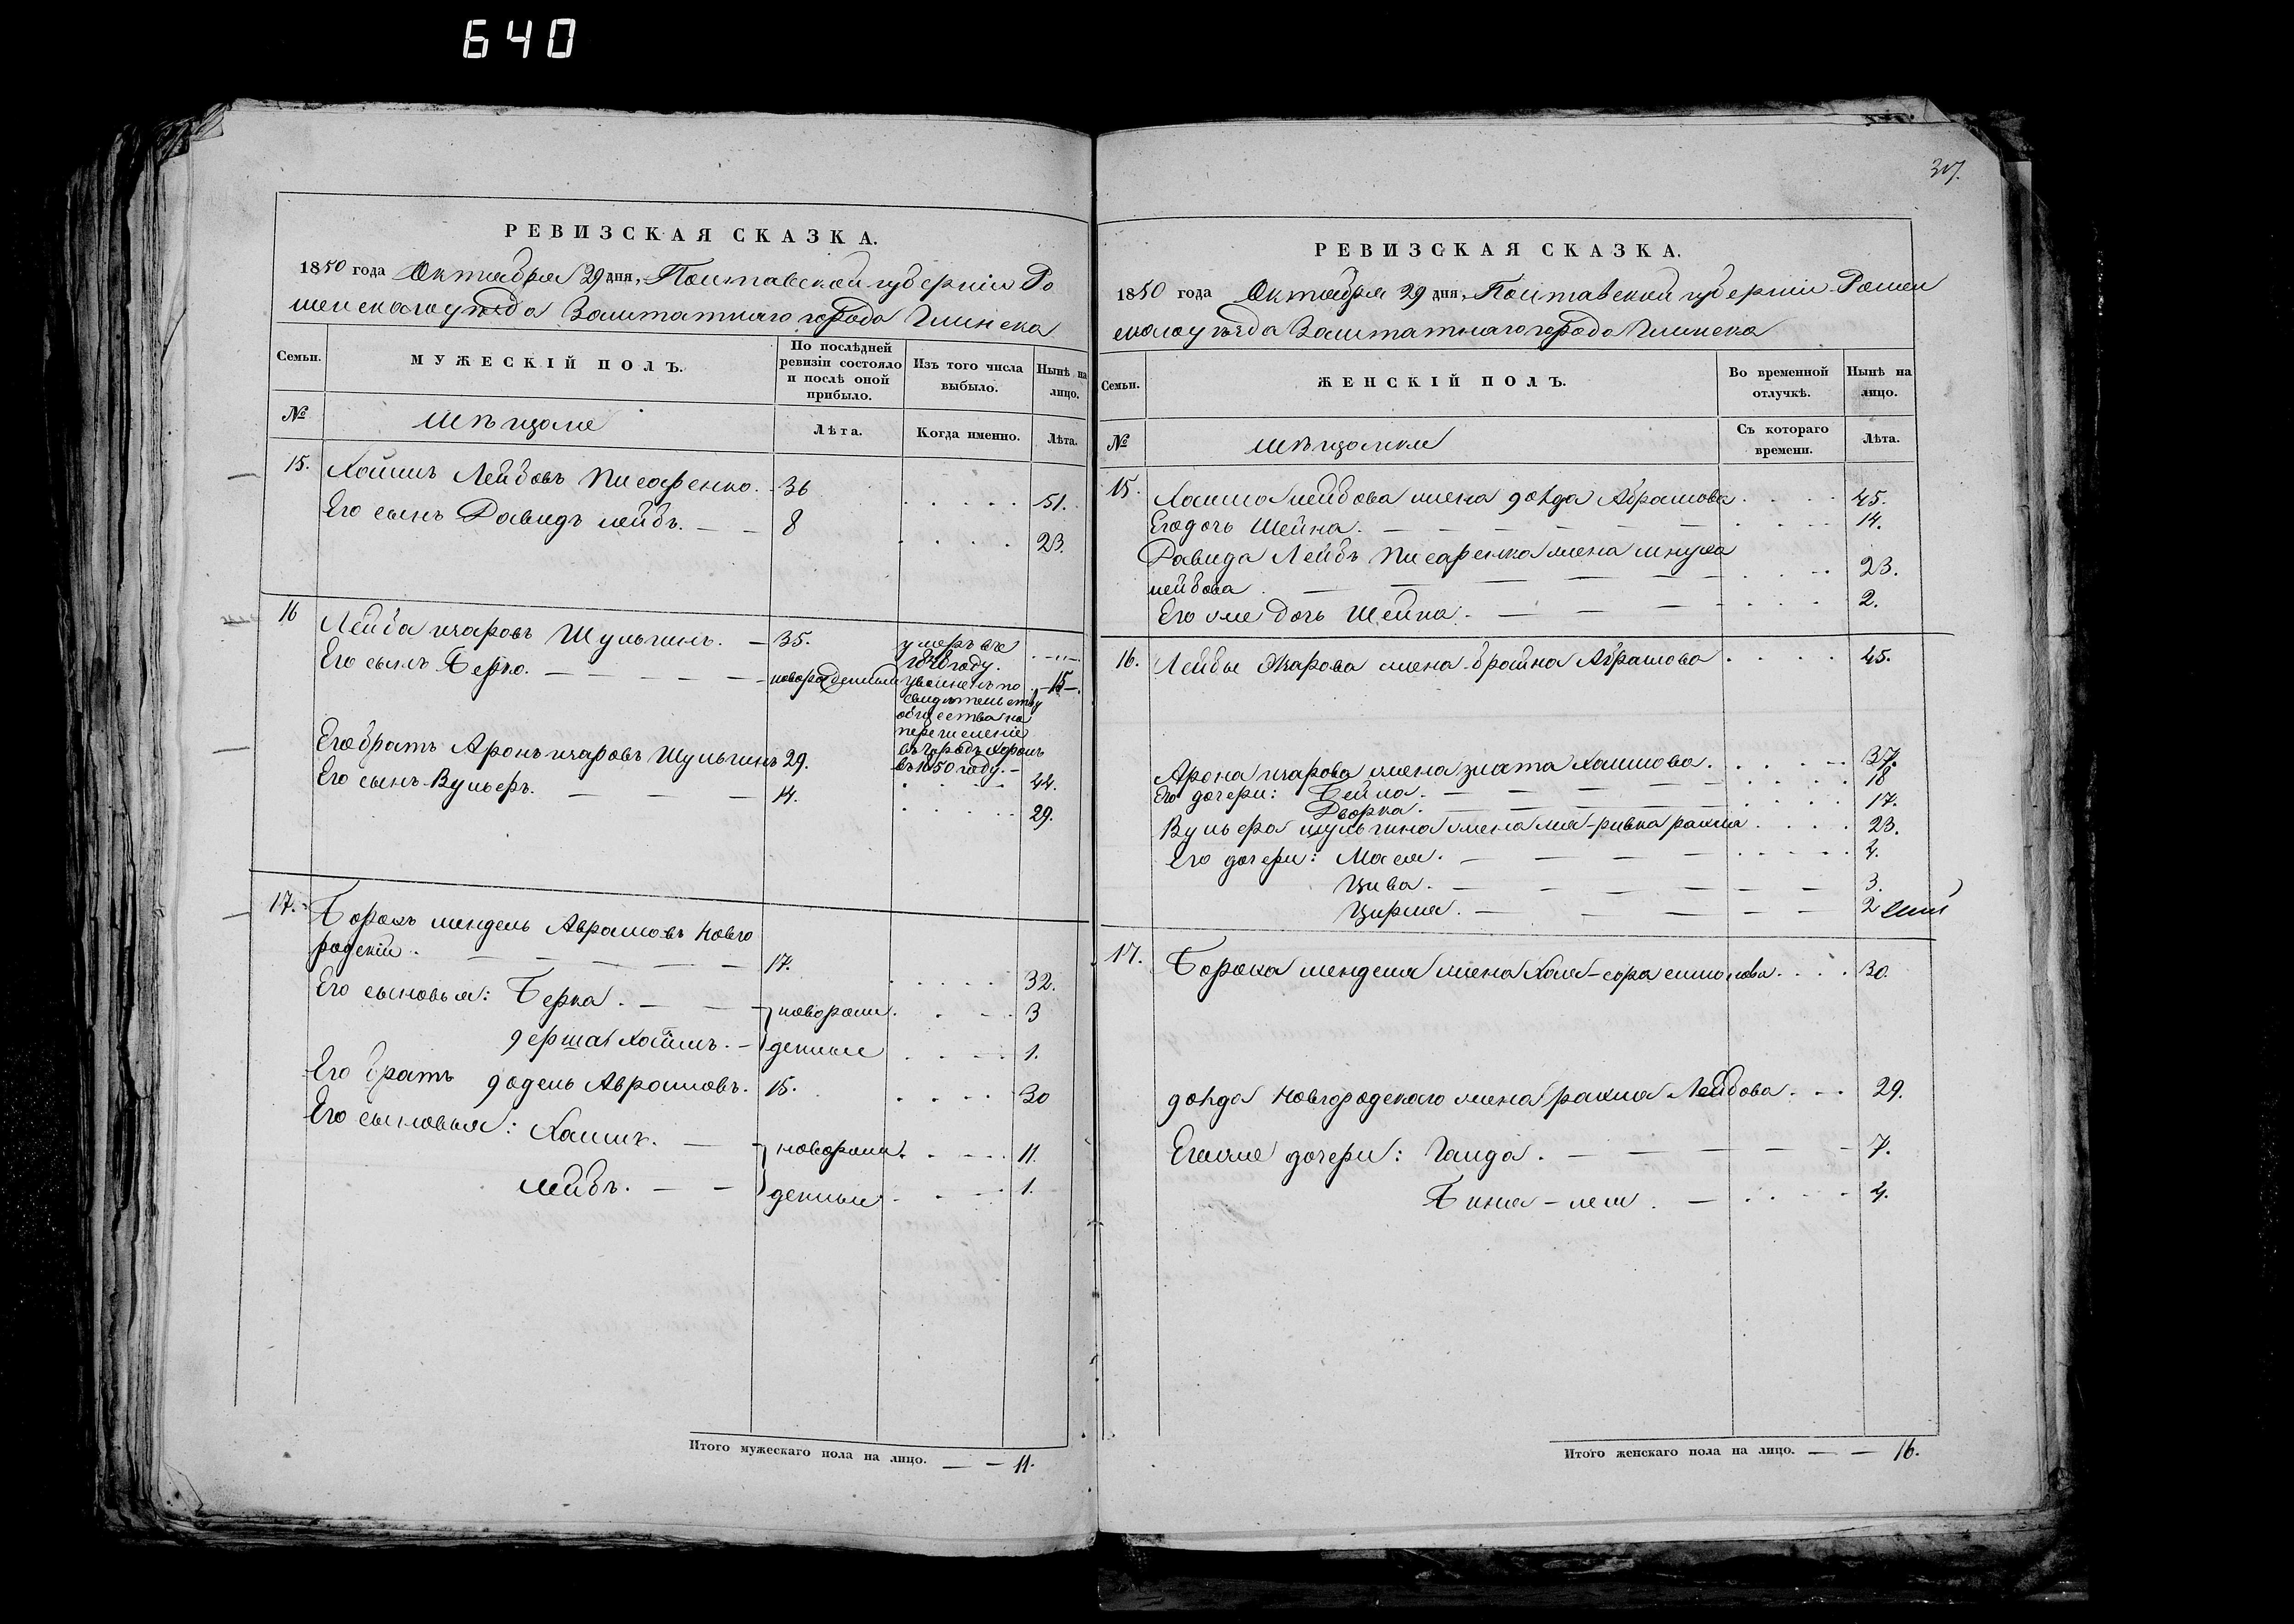 640
РЕВИЗСКАЯ СКАЗКА.
1850 года Октября 29 дня, Полтавской губернии Ро
менскаго уѣзда Заштатнаго города Глинска
Семьи.
МУЖЕСКІЙ ПОЛЪ.
По послѣдней ревизіи состояло и послѣ оной прибыло.
Изъ того числа выбыло.
Нынѣ на лицо.
№
Мѣщане
Лѣта.
Когда именно.
Лѣта.
15. Хаимъ Лейбовъ Писаренко. 36 51.
Его сынъ Давидъ лейбъ. 8 23.
16 Лейба Шульгинъ. 35. умеръ въ
1848 году.
Его сынъ Берко. новорожденный уволенъ по 15
свидѣтельству
общества на
перечисление
въ городъ
въ 1850 году.
Его братъ Аронъ Шульгинъ 29. 44.
Его сынъ Вульфъ. 14. 29.
17. Борохъ мендель Аврамовъ Новго
родскій. 17. 32.
Его сыновья: Берка. новорож 3
Хаимъ. денные 1.
Его братъ Аврамовъ. 15. 30
Его сыновья: Хаимъ. новорож 11.
лейбъ. денные 1.
Итого мужескаго пола на лицо. 11.
317.
РЕВИЗСКАЯ СКАЗКА.
1850 года Октября 29 дня, Полтавской губерніи Ромен
скаго уѣзда Заштатнаго города Глинска
Семьи.
ЖЕНСКІЙ ПОЛЪ.
Во временной отлучкѣ.
Нынѣ на лицо.
№
мѣщанки
Съ котораго времени.
Лѣта.
15. Хаима лейбова жена Абрамова 45.
Его дочь Шейна. 14.
Давида Лейбъ Писаренка жена
лейбова 23.
Его же дочь Шейна. 2.
16. Лейбы жена брайна Абрамова 45.
Арона жена злата Хаимова. 37.
Его дочери: Бейла. 18
Дворка. 17.
Вульфа шульгина жена 23.
Его дочери: Мася. 4.
Цива. 3.
Цирля. 2
17. Бороха менделя жена Хая-сора 30.
Новгородскаго жена Лейбова 29.
Его же дочери: Гинда. 7.
4.
Итого женскаго пола на лицо. 16.